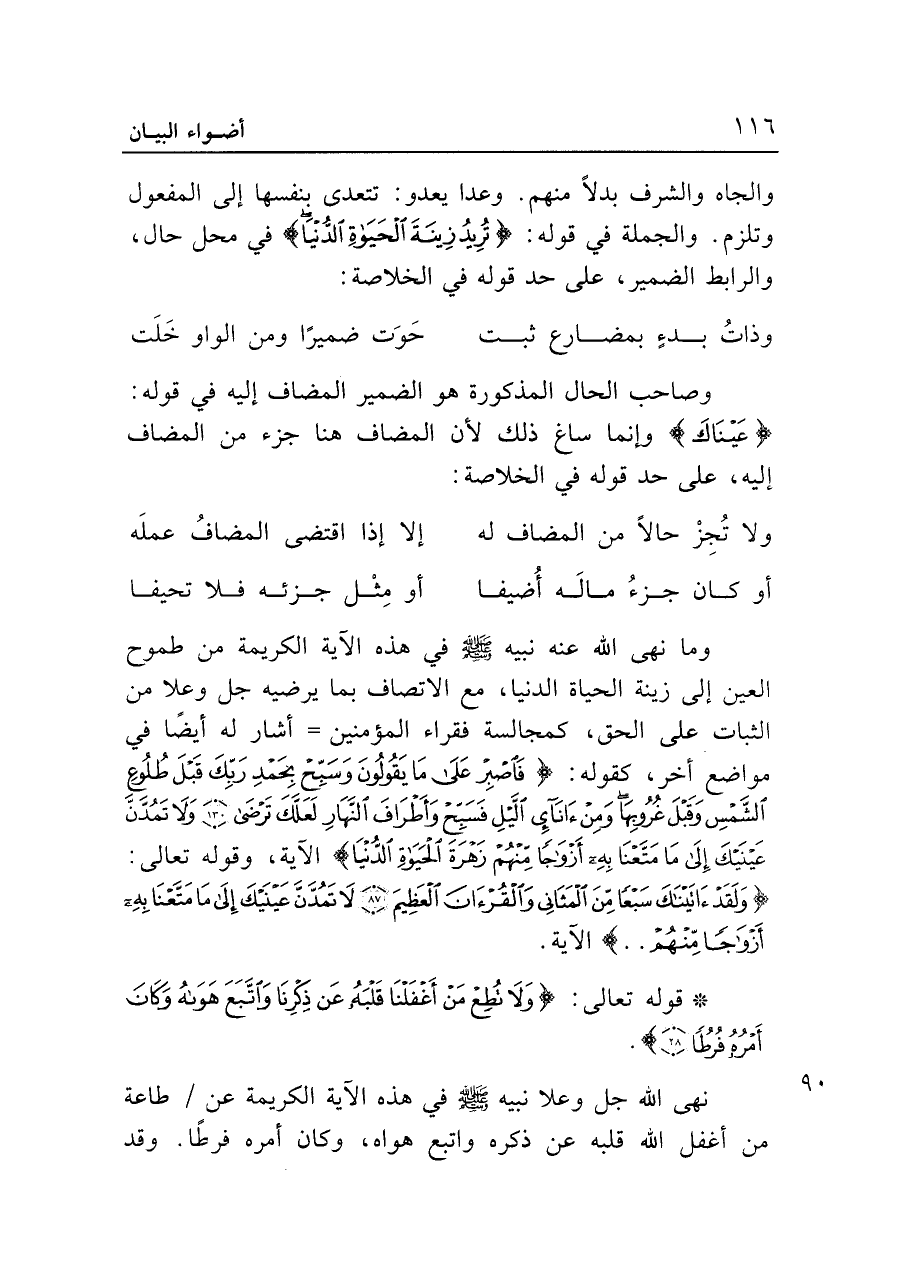 ١١٦ أضـواء البيـان
والجاه والشرف بدلاً منهم. وعدا يعدو: تتعدى بنفسها إلى المفعول
وتلزم. والجملة في قوله: ﴿ تُرِيدُ زِينَةَ ٱلْحَيَوٰةِ ٱلدُّنْيَاۖ ﴾ في محل حال،
والرابط الضمير، على حد قوله في الخلاصة:
وذاتُ بـــدءٍ بمضـــارع ثبـــت حَوَت ضميرًا ومن الواو خَلَت
وصاحب الحال المذكورة هو الضمير المضاف إليه في قوله:
﴿ عَيْنَاكَ ﴾ وإنما ساغ ذلك لأن المضاف هنا جزء من المضاف
إليه، على حد قوله في الخلاصة:
ولا تُجِزْ حالاً من المضاف له إلا إذا اقتضى المضافُ عملَه
أو كـان جـزءُ مـالَـه أُضيفـا أو مِثْـل جـزئـه فـلا تحيفـا
وما نهى الله عنه نبيه ﷺ في هذه الآية الكريمة من طموح
العين إلى زينة الحياة الدنيا، مع الاتصاف بما يرضيه جل وعلا من
الثبات على الحق، كمجالسة فقراء المؤمنين = أشار له أيضًا في
مواضع أخر، كقوله: ﴿ فَٱصْبِرْ عَلَىٰ مَا يَقُولُونَ وَسَبِّحْ بِحَمْدِ رَبِّكَ قَبْلَ طُلُوعِ
ٱلشَّمْسِ وَقَبْلَ غُرُوبِهَاۖ وَمِنْ ءَانَآيِٕ ٱلَّيْلِ فَسَبِّحْ وَأَطْرَافَ ٱلنَّهَارِ لَعَلَّكَ تَرْضَىٰ ١٣٠ وَلَا تَمُدَّنَّ
عَيْنَيْكَ إِلَىٰ مَا مَتَّعْنَا بِهِۦٓ أَزْوَٰجًا مِّنْهُمْ زَهْرَةَ ٱلْحَيَوٰةِ ٱلدُّنْيَا ﴾ الآية، وقوله تعالى:
﴿ وَلَقَدْ ءَاتَيْنَٰكَ سَبْعًا مِّنَ ٱلْمَثَانِى وَٱلْقُرْءَانَ ٱلْعَظِيمَ ٨٧ لَا تَمُدَّنَّ عَيْنَيْكَ إِلَىٰ مَا مَتَّعْنَا بِهِۦٓ
أَزْوَٰجًا مِّنْهُمْ . . ﴾ الآية.
* قوله تعالى: ﴿ وَلَا تُطِعْ مَنْ أَغْفَلْنَا قَلْبَهُۥ عَن ذِكْرِنَا وَٱتَّبَعَ هَوَىٰهُ وَكَانَ
أَمْرُهُۥ فُرُطًا ٢٨ ﴾.
٩٠
نهى الله جل وعلا نبيه ﷺ في هذه الآية الكريمة عن / طاعة
من أغفل الله قلبه عن ذكره واتبع هواه، وكان أمره فرطًا. وقد